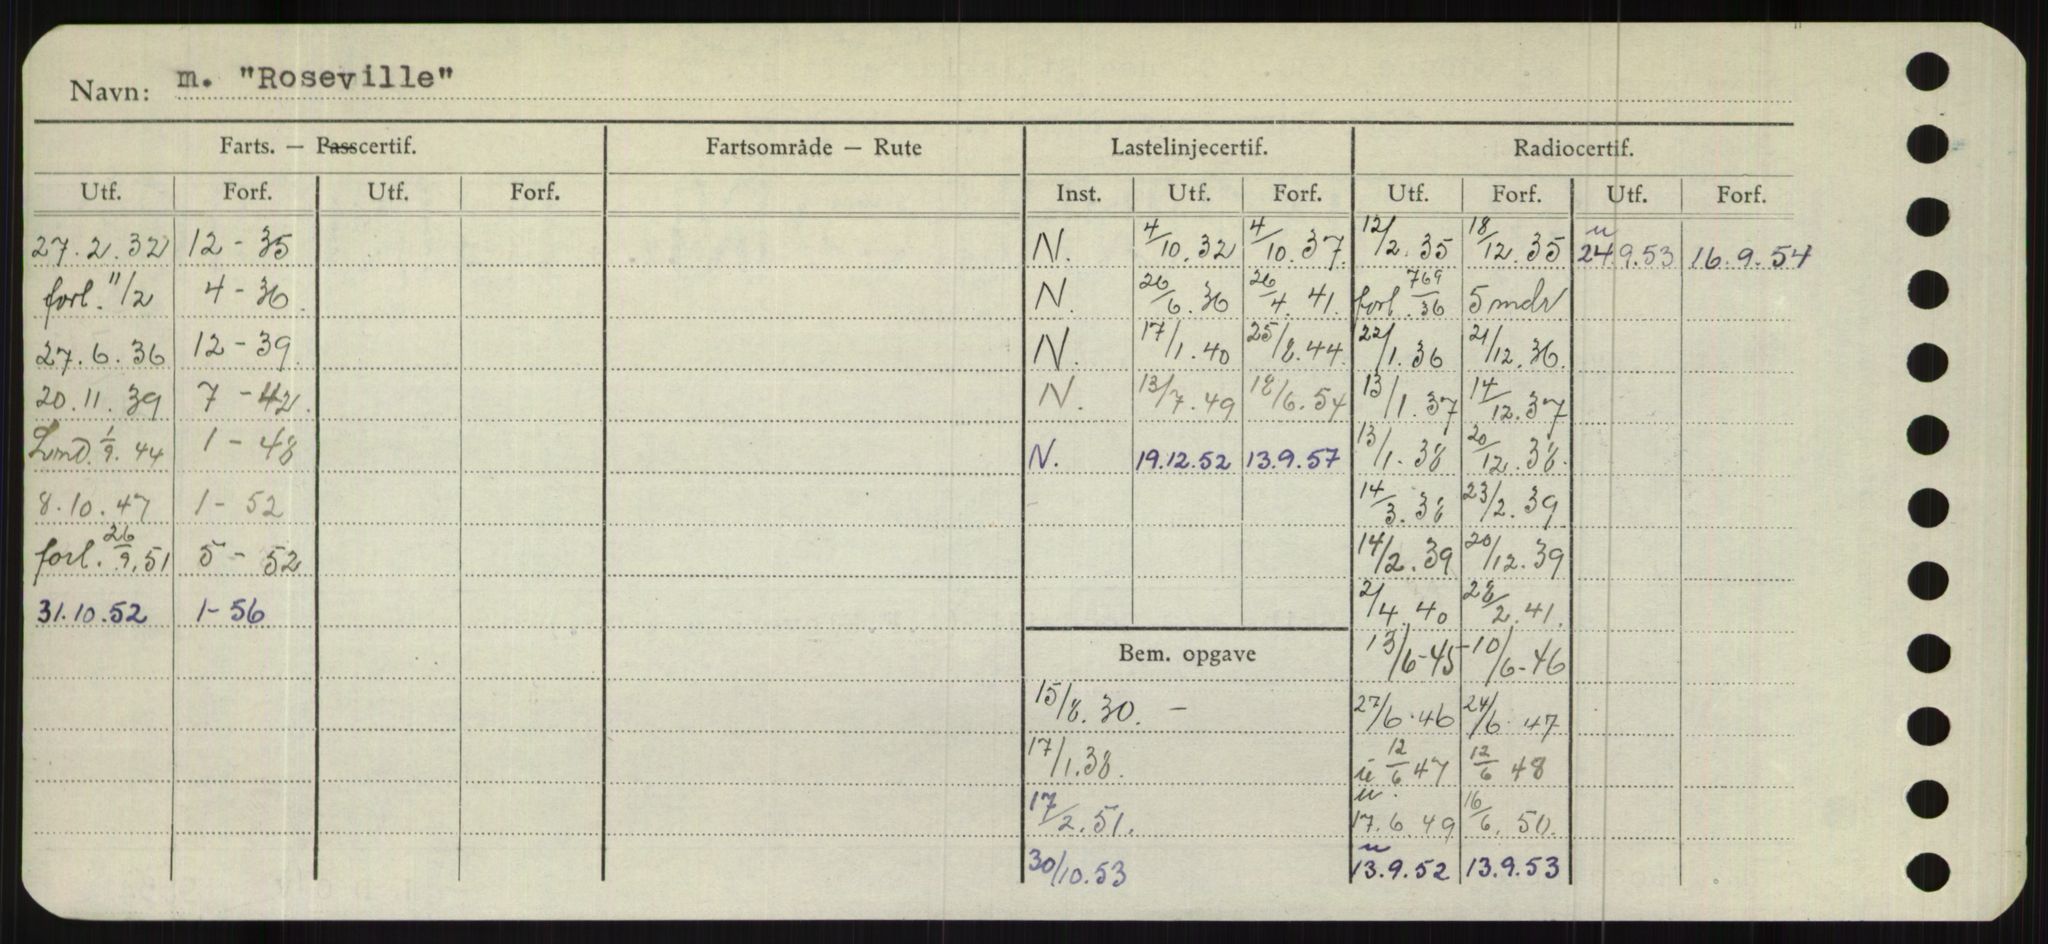 Navn: m. "Roseville"
Farts. — Passcertif. Fartsområde — Rute Lastelinjecertif. Radiocertif.
Utf. Forf. Utf. Forf. Inst. Utf. Forf. Utf. Forf. Utf. Forf.
27.2.32 12-35 N. 4/10.32 4/10.37. 12/2.35 18/12.35 u 24.9.53 16.9.54
forl. 11/2 4-36. N. 26/6.36 26/4.41. forl. 769/36 5 mdr
27.6.36 12-39. N. 17/1.40 25/8.44. 22/1.36 21/12.36.
20.11.39 7-42. N. 13/7.49 18/6.54 13/1.37 14/12.37
Lnd. 1/9.44 1-48 N. 19.12.52 13.9.57 13/1.38 20/12.38.
8.10.47 1-52 14/3.38 23/2.39
forl. 26/9.51 5-52 14/2.39 20/12.39
31.10.52 1-56 2/4.40 28/2.41.
Bem. opgave 13/6-45 10/6-46
15/8.30. - 27/6.46 24/6.47
17/1.38. u 12/6 47 12/6 48
17/2.51. u. 17.6.49 16/6.50.
30/10.53 u 13.9.52 13.9.53